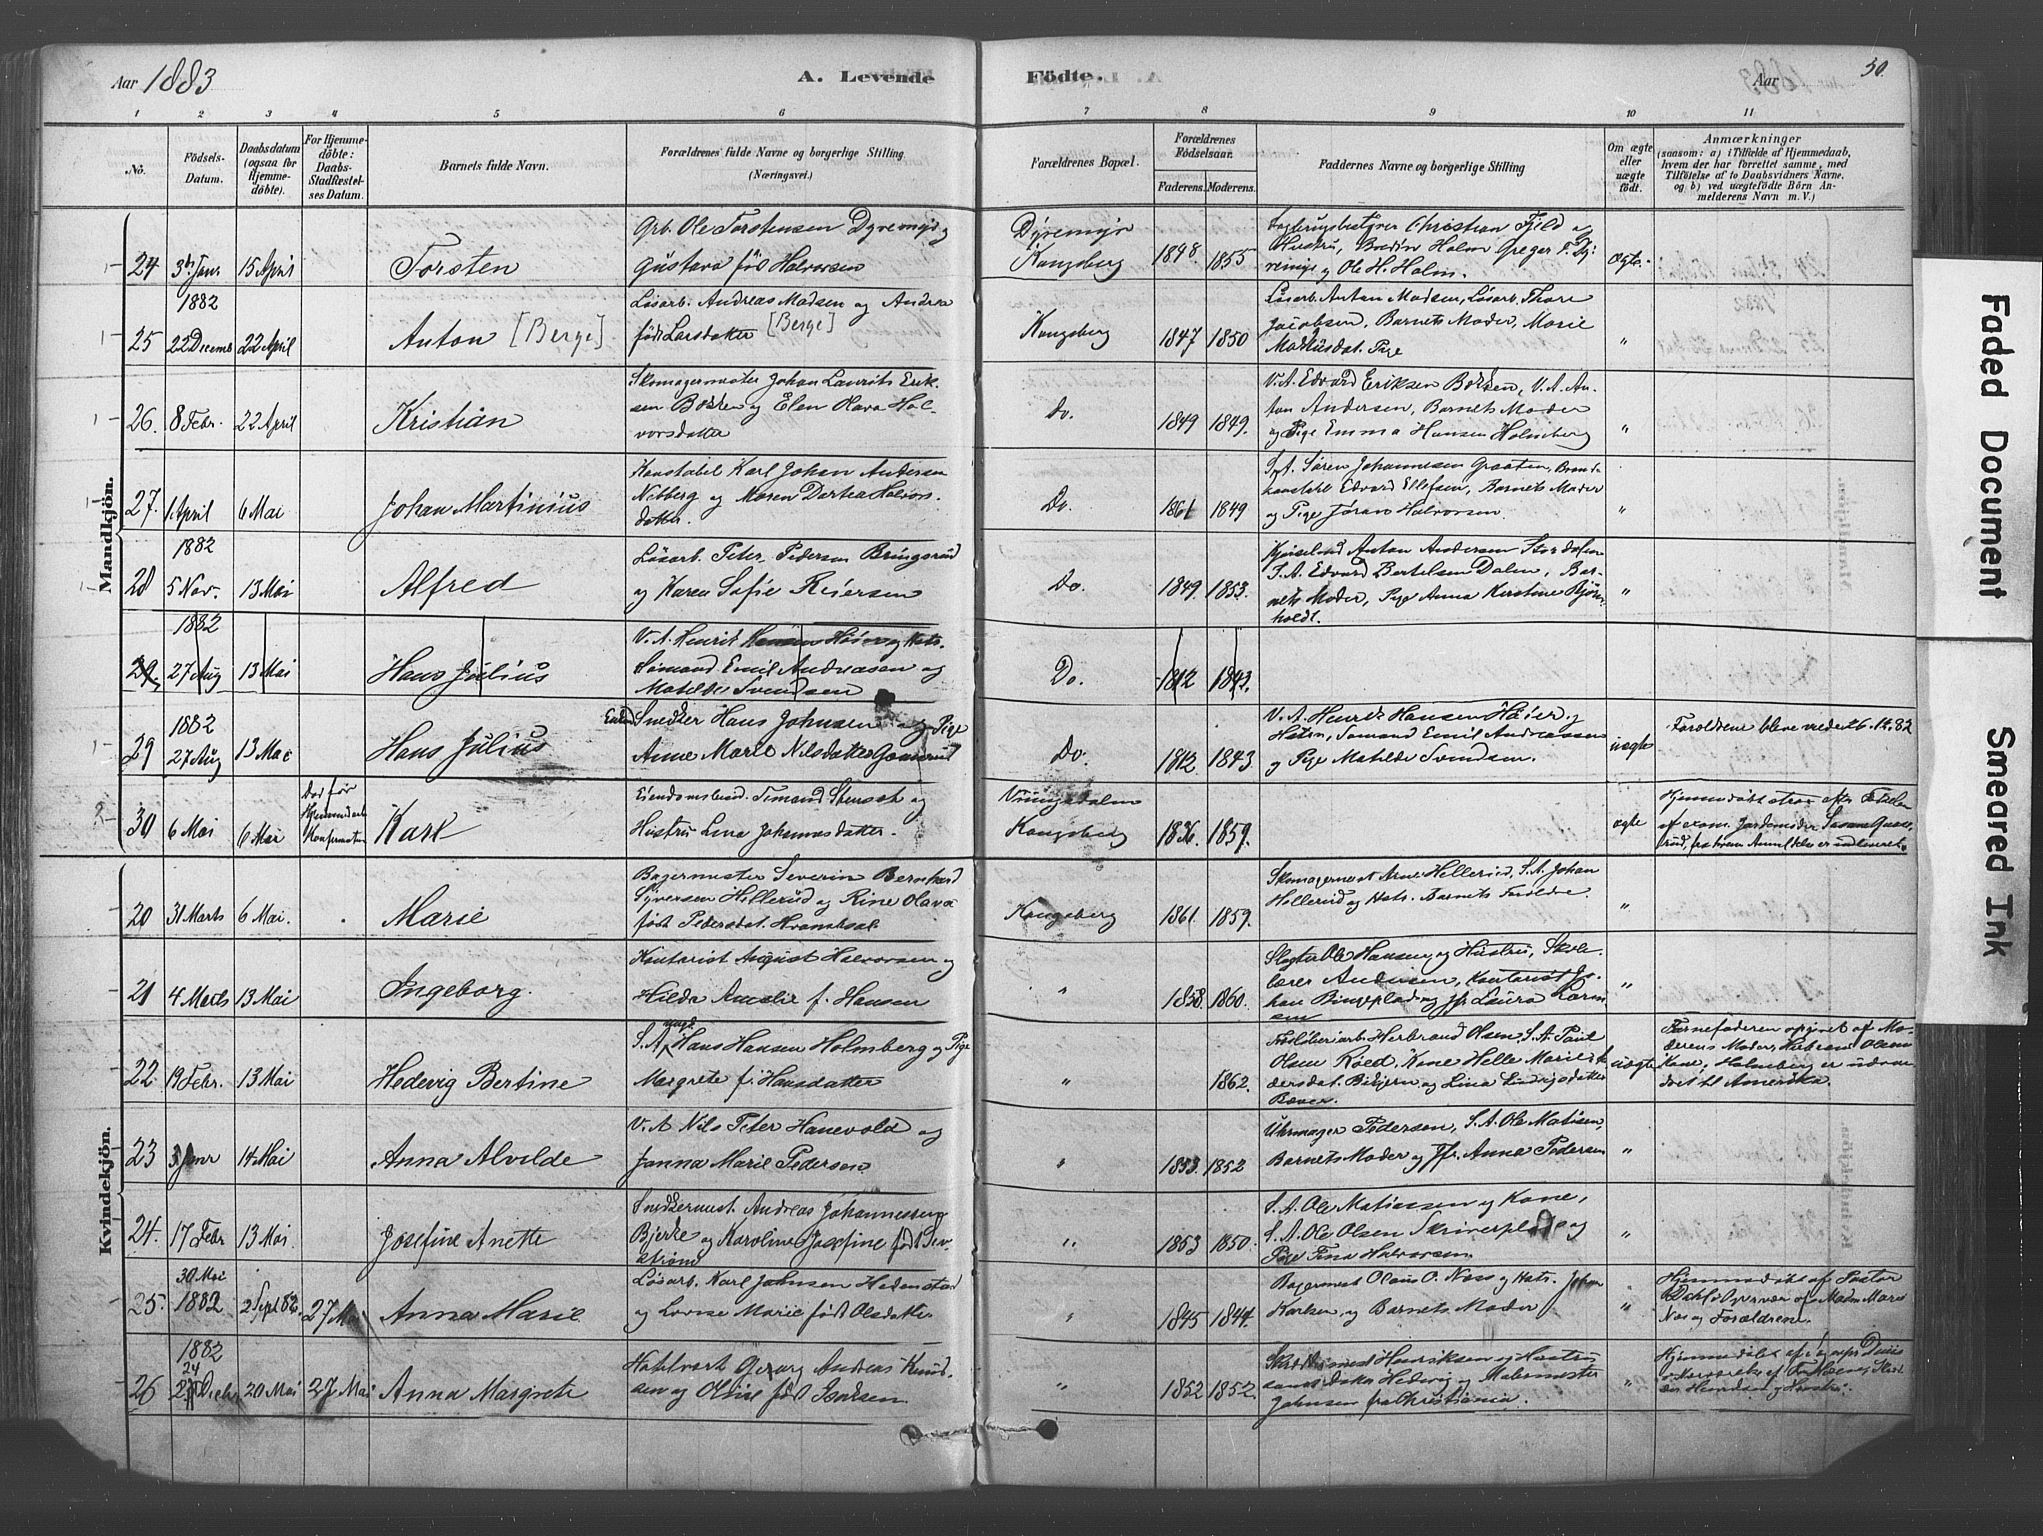 Aar 1883
A. Levende
Födte.
Aar
50.
1 2 3 4 5 6 7 8 9 10 11
No.
Födsels-
Datum.
Daabsdatum
(ogsaa for
Hjemme-
döbte).
For Hjemme-
döbte:
Daabs-
Stadfæstel-
ses Datum.
Barnets fulde Navn.
Forældrenes fulde Navne og borgerlige Stilling
(Næringsvei.)
Forældrenes Bopæl.
Forældrenes
Födselsaar.
Faderens. Moderens.
Faddernes Navne og borgerlige Stilling
Om ægte
eller
uægte
födt.
Anmærkninger
(saasom: a) i Tilfælde af Hjemmedaab,
hvem der har forrettet samme, med
Tilföielse af to Daabsvidners Navne,
og b) ved uægtefödte Börn An-
melderens Navn m. V.)
Mandkjön.
24 3die Janr 15 April
Torsten
Grb. Ole Torstensen Dyremyr og
Gustava fød Halvorsen
Dyremyr
Kongsberg
1848. 1855
Christian Fjeld og
Hustru, Holm Greger T. Dy-
remyr og Ole H. Holm.
ægte.
25
1882
22 Decemb 22 April
Anton [Berge]
Løsarb. Andreas Madsen og Andrea
født Larsdatter [Berge]
Kongsberg
1847 1850
Løsarb. Anton Madsen, Løsarb. Thore
Jacobsen, Barnets Moder, Marie
Markusdat. Pige
"
26. 8 Febr. 22 April
Kristian
Skomagermester Johan Laurits Erik-
sen Bakken og Elen Olava Hal-
vorsdatter
Do.
1849 1849.
V.A. Edvard Eriksen Bakken, V.A. An-
ton Andersen, Barnets Moder
og Pige Emma Hansen Holmberg
"
27. 1 April 6 Mai
Johan Martinius
Konstabel Karl Johan Andersen
Nebberg og Maren Dortea Halvors-
datter.
Do.
1861 1849
S.A. Søren Johannesen Graaten, Brand-
konstabl Edvard Ellefsen, Barnets Moder
og Pige Jøran Halvorsen.
"
28
1882
5 Nov. 13 Mai
Alfred
Løsarb. Peter Pedersen Bringsrud
og Karen Sofie Reiersen
Do.
1849. 1853.
Anton Andersen
S.A. Edvard Bertelsen Dalen, Bar-
nets Moder, Pige Anna Kirstine
holdt.
"
29.
1882
27 Aug 13 Mai
Hans Julius
V.A. Henrik Hansen Høier og Hstr.
Sømand Emil Andreasen og
Matilde Svendsen
Do.
1812 1843.
29
1882
27 Aug 13 Mai
Hans Julius
Snedker Hans Johnsen og Pige
Anne Marie Nilsdatter
Do.
1812. 1843
V.A. Henrik Hansen Høier og
Hstru, Sømand Emil Andreassen
og Pige Matilde Svendsen.
uægte
Foreldrene bleve viede 26.12.82
30 6 Mai 6 Mai
Død før
Hjemmedaabs
Konfirmation
Karl
Simand og
Hustru Lina Johannesdatter.
Kongsberg
1836. 1859.
ægte
Hjemmedøbt strax efter Fødselen
af exam. Jordemoder
fra hvem Anmeldelse er indleveret.
Kvindekjön.
20 31 Marts 6 Mai.
Marie
Bagermester Severin Bernhard
Syversen Hellerud og Rine Olava
født Pedersdat.
Kongsberg
1861. 1859.
Skomagermest Arne Hellerud, S.A. Johan
Hellerud og Hstr. Barnets Foreldre
"
21 4 Marts 13 Mai
Ingeborg.
Kontorist August Halvorsen og
Hilda Amalie f. Hansen
"
1858. 1860.
Slagter Ole Hansen og Hustru, Skole-
lærer Andersen, Kontorist Jo-
han Bingeplads og Jfr. Laura Lars-
sen
"
22 19 Febr. 13 Mai
Hedevig Bertine
S.A. ungk. Hans Hansen Holmberg og Pige
Margrete f. Hansdatter
"
1862.
Herbrand Olsen, S.A. Paul
Olsen Røed, Kone Helle Marie
dersdat. og Lina Ludvigsdatter
Bæver.
uægte
Barnefaderen opgivet af Mo-
derens Moder, Herbrand Olsens
Kone, Holmberg er udvan-
dret til Amerika.
23 3 Janr 14 Mai
Anna Alvilde
V.A. Nils Peter Hanevold og
Janna Marie Pedersen
"
1853. 1852
Uhrmager Pedersen, S.A. Ole Matisen,
Barnets Moder og Jfr. Anna Pedersen
"
24. 17 Febr 13 Mai.
Josefine Anette
Snedkermest. Andreas Johannessen
Bjerke og Karoline Josefine født Sev-
aldsen
"
1853 1850.
S.A. Ole Matiassen og Kone,
S.A. Ole Olsen Skriverplads og
Pige Tina Halvorsen.
"
25.
30 Mai
1882 2 Sept 82 27 Mai
Anna Marie
Løsarb. Karl Johnsen Hedenstad
og Lovise Marie født Olsdatter
"
1845 1844.
Bagermest Olaus O. Næss og Hstr. Johan
Karlsen, og Barnets Moder
"
Hjemmedøbt af Pastor
Dahl i Overvær af Madm Marie
Næs og Foreldrene.
26
1882
24
Decbr 20 Mai 27 Mai
Anna Margrete
Georg Andreas Knud-
sen og Oline født Isaksen
"
1852 1852.
Henriksen og Hustru
samt dsks Hedvig og Malermester
Johnsen fra Christiania.
"
Hjemmedøbt af
i Overværelse af Faderen,
Faded Document
Smeared Ink